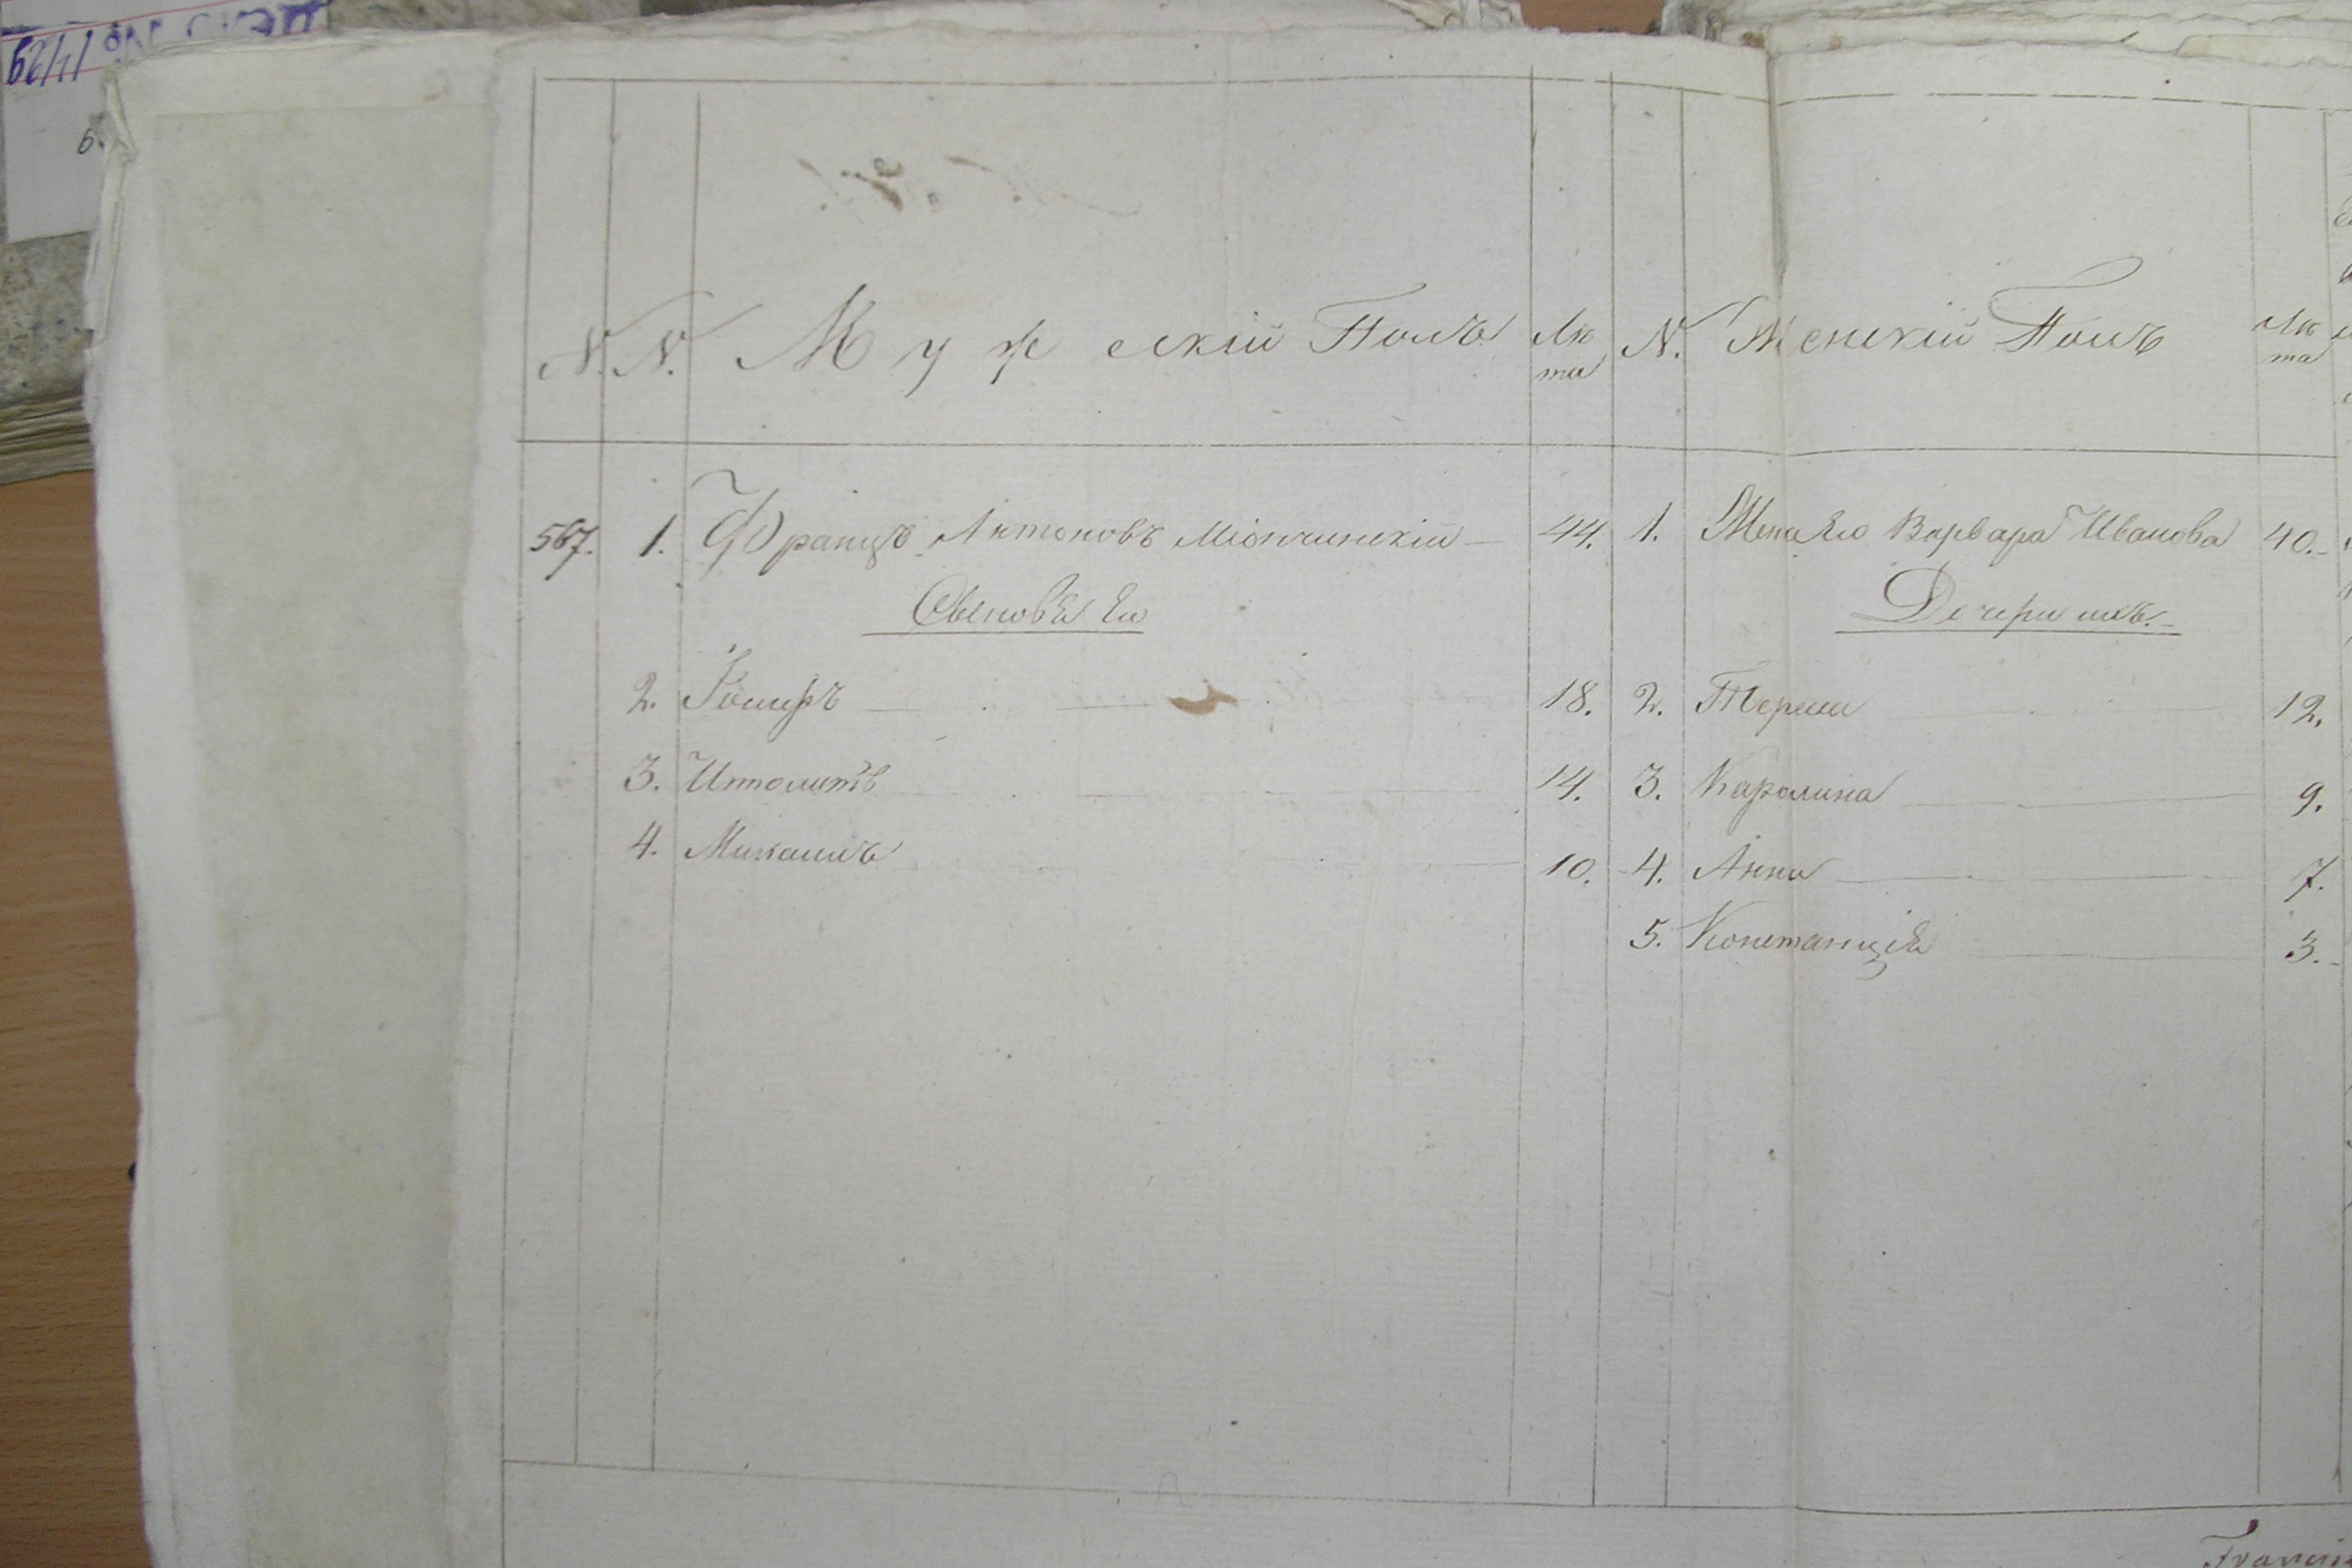 N. N. Мужескій Полъ Лѣта N. Женскій Полъ Лѣта
567. 1. Францъ Антоновъ Міончинскій 44. 1. Жена Его Варвара Иванова 40.
Сыновья Его Дочери ихъ.
2. 18. 2. 12.
3. Ипполитъ 14. 3. Каролина 9.
4. Михаилъ 10. 4. Анна 7.
5. Констанція 3.